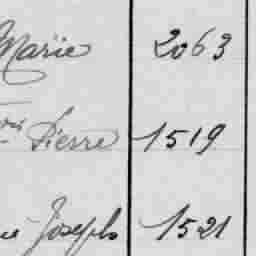 Marie 2063
Pierre 1519
Joseph 1521